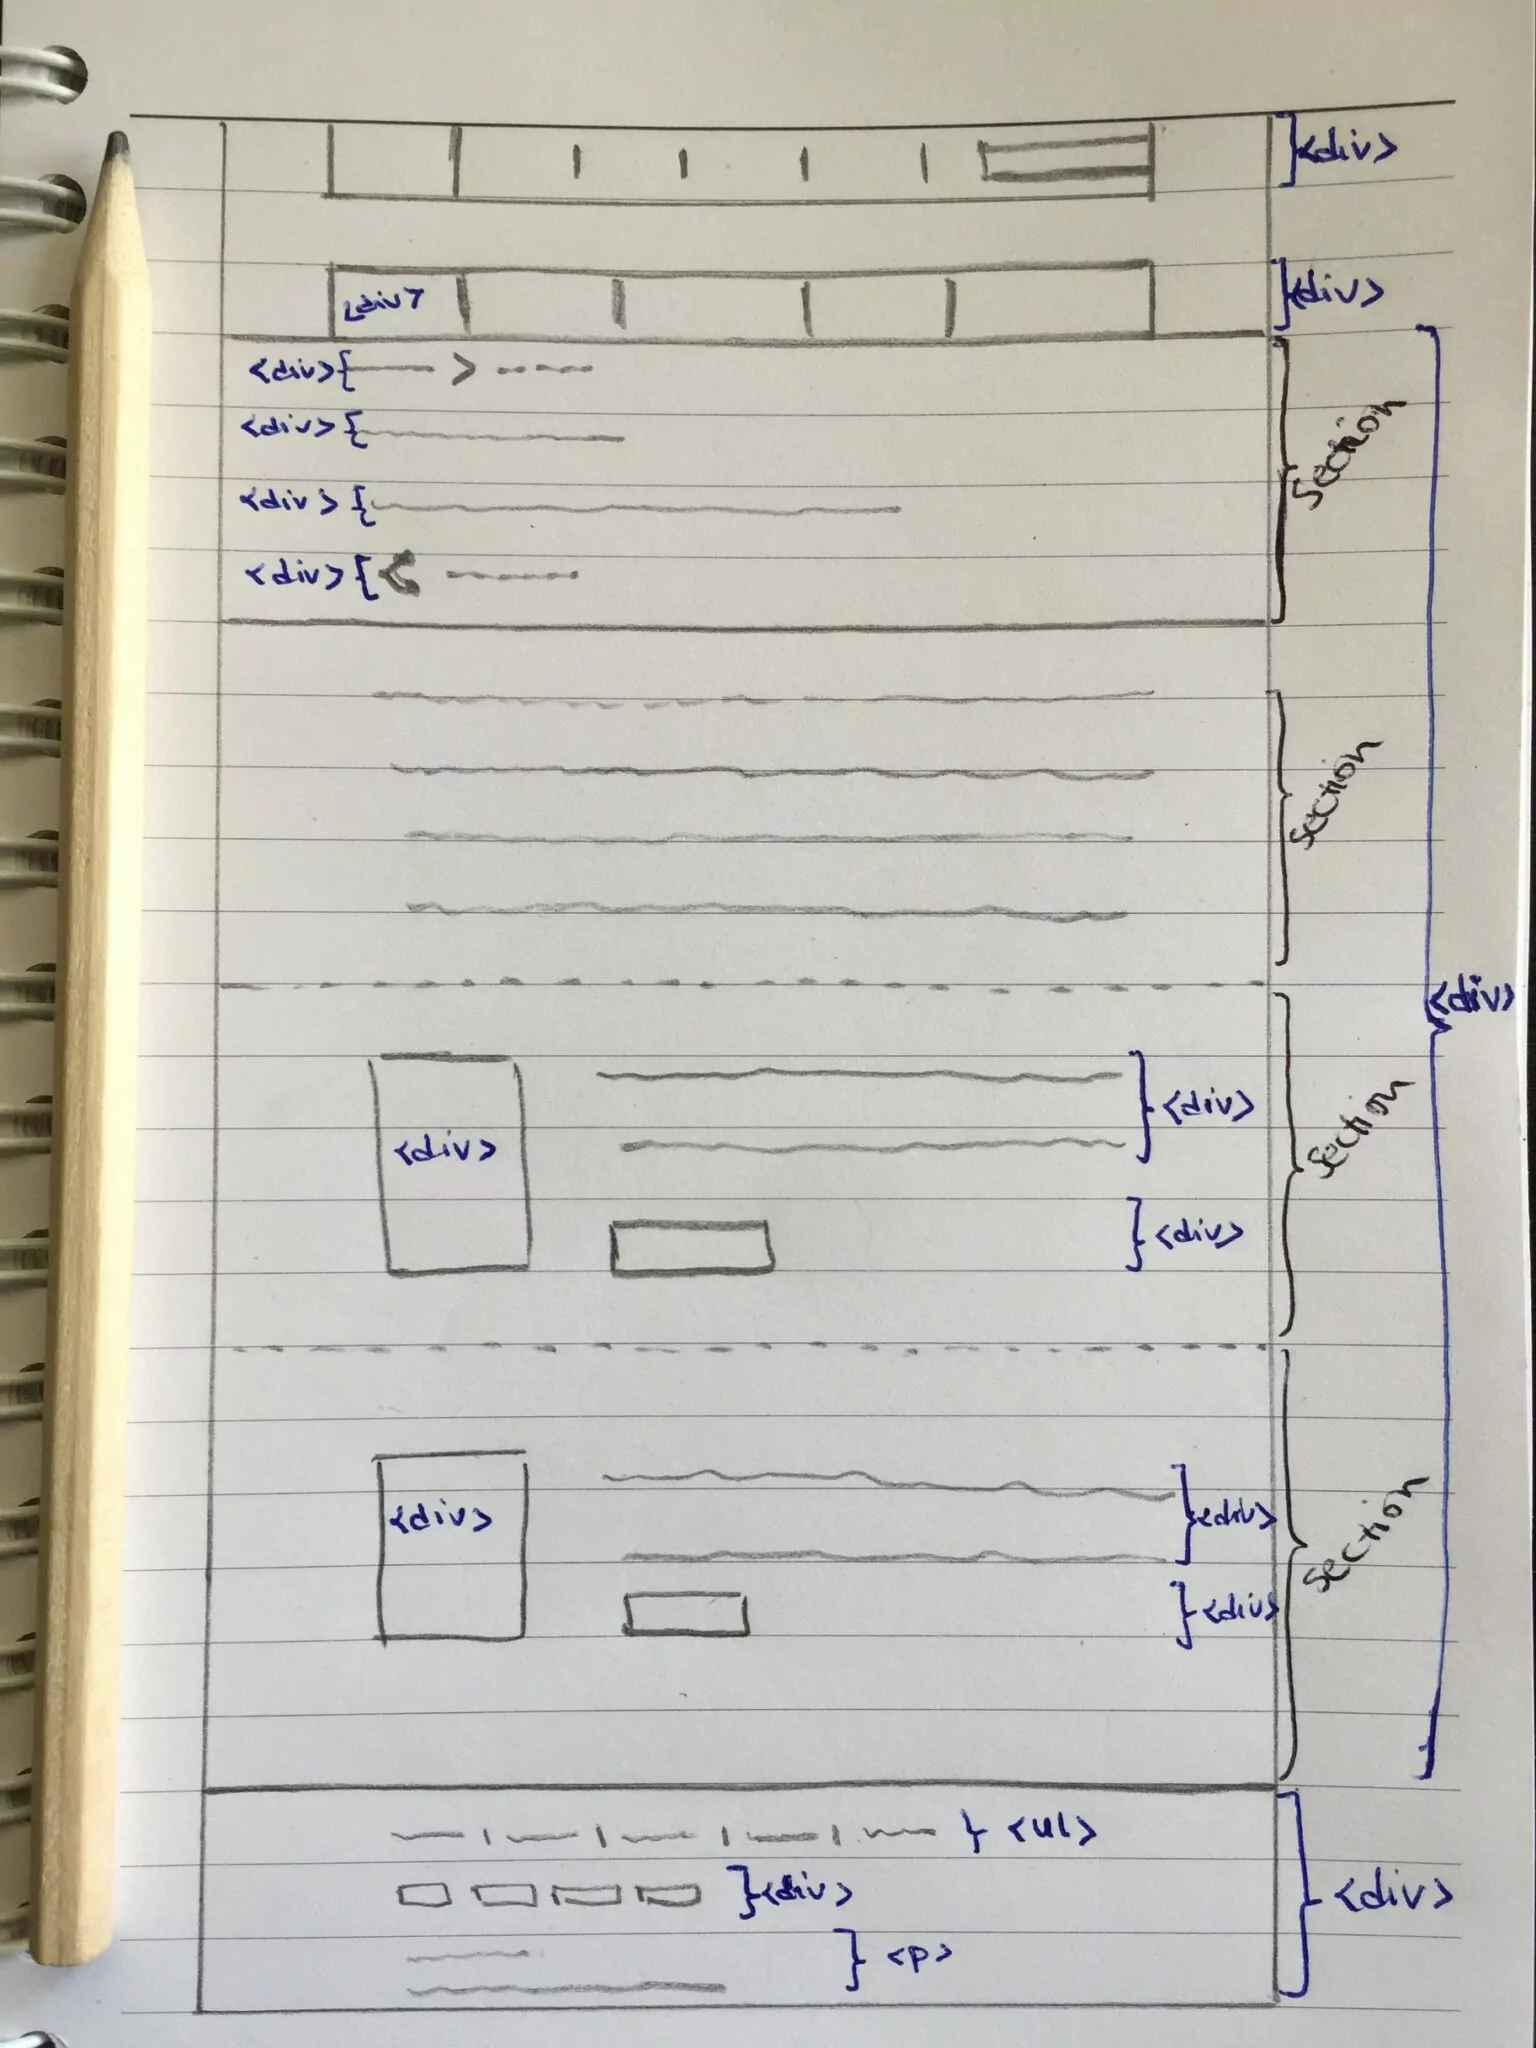 <div>
<div>
<div>
<div>
<div>
<div>
<div>
Section
Section
<div>
<div>
<div>
<div>
Section
<div>
<div>
<div>
Section
<ul>
<div>
<div>
<p>